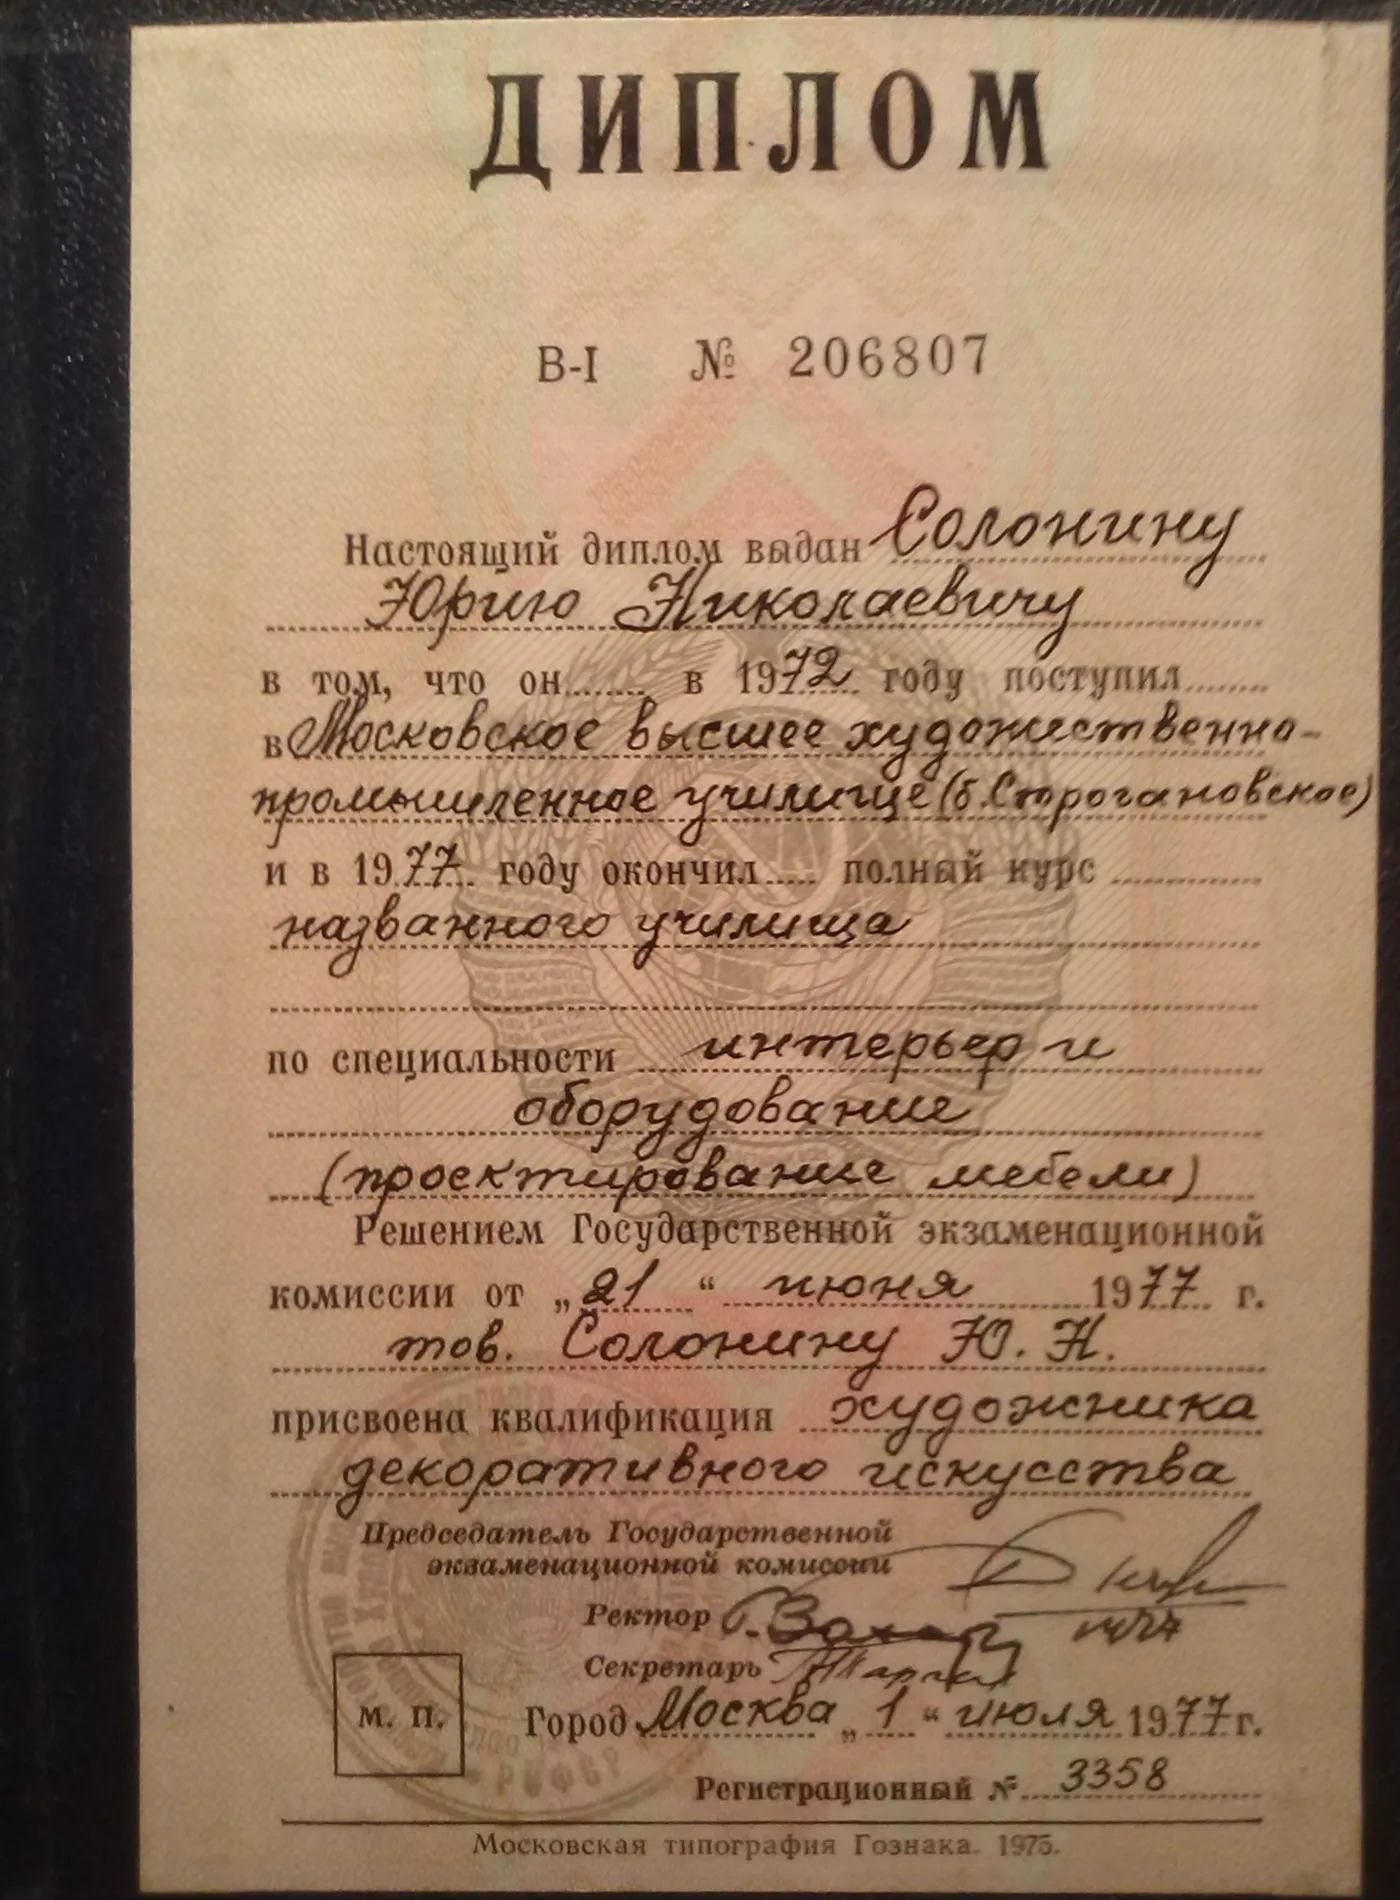 ДИПЛОМ
В-I № 206807
Настоящий диплом выдан Солонину
Юрию Николаевичу
в том, что он в 1972 году поступил
в Московское высшее художественно-
промышленное училище (б. Строгановское)
и в 1977 году окончил полный курс
названного училища
по специальности интерьер и
оборудование
(проектирование мебели)
Решением Государственной экзаменационной
комиссии от „21“ июня 1977 г.
тов. Солонину Ю. Н.
присвоена квалификация художника
декоративного искусства
Председатель Государственной
экзаменационной комиссии
Ректор
Секретарь
М. П.
Город Москва „1“ июля 1977 г.
Регистрационный № 3358
Московская типография Гознака. 1975.